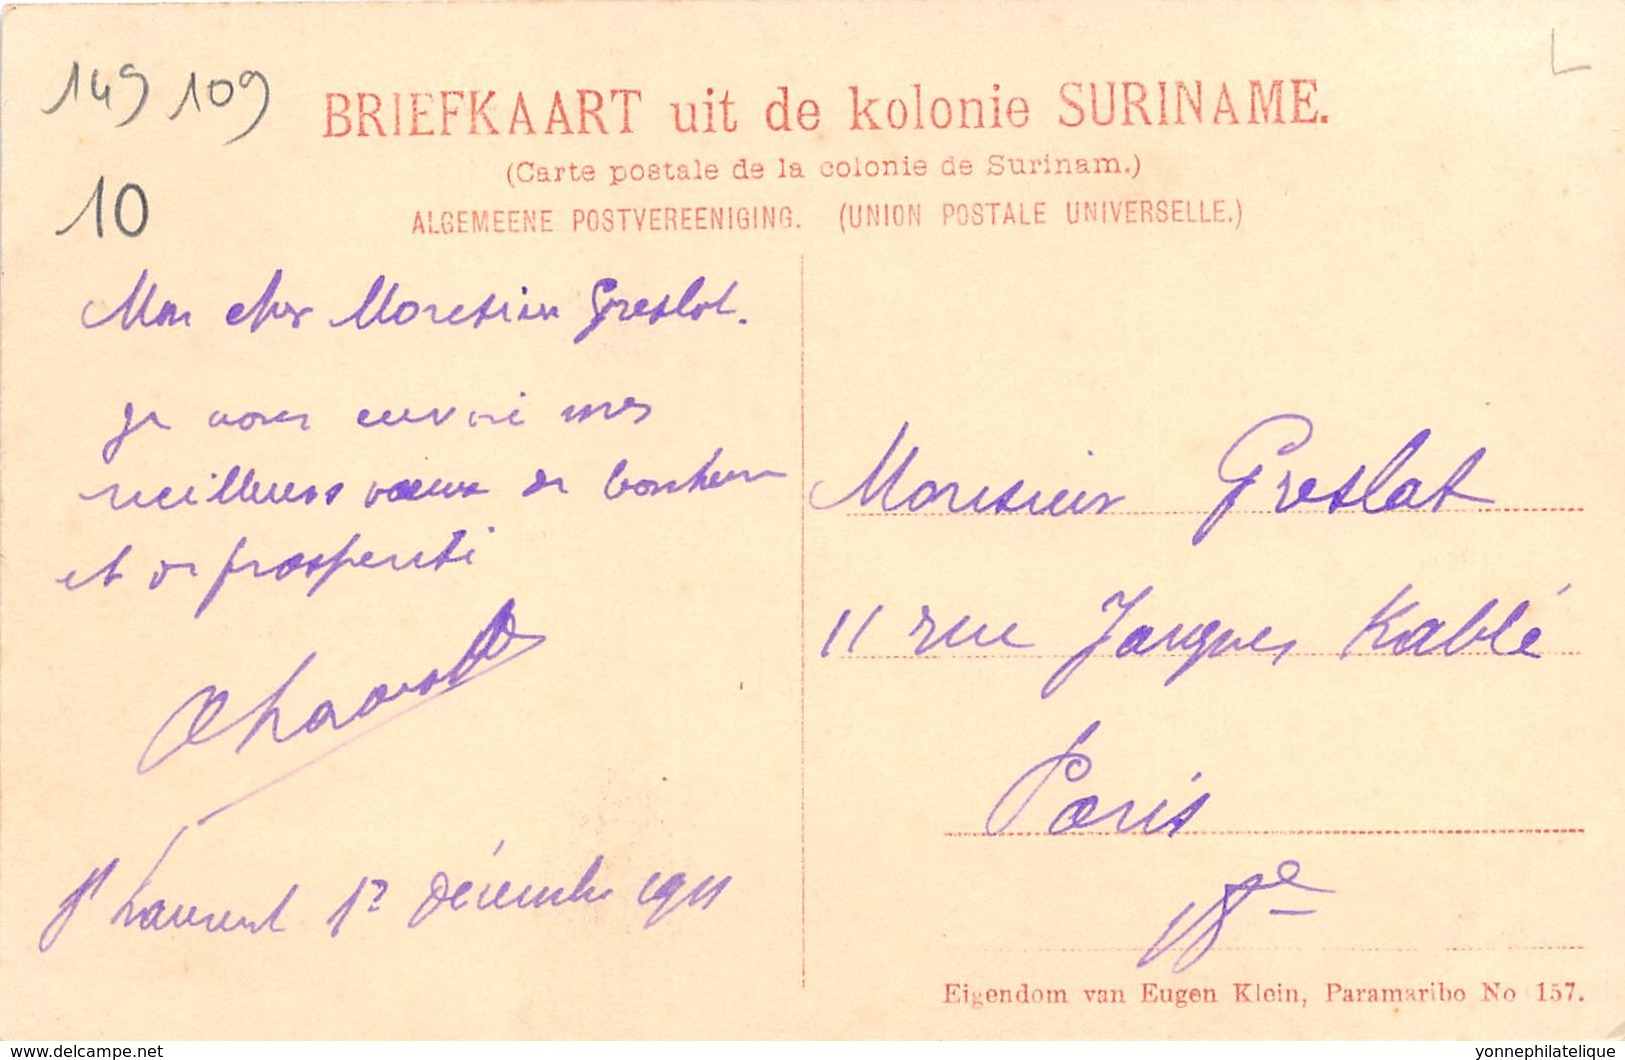 149 109
10
L
BRIEFKAART uit de kolonie SURINAME.
(Carte postale de la colonie de Surinam.)
ALGEMEENE POSTVEREENIGING. (UNION POSTALE UNIVERSELLE.)
Mon cher Monsieur Greslot.
je vous envoi mes
meilleurs vœux de bonheur
et de prosperité
St Laurent 12 Décembre 1911
Monsieur Greslot
11 rue Jacques Kablé
Paris
18e
Eigendom van Eugen Klein, Paramaribo No 157.
yonnephilatelique